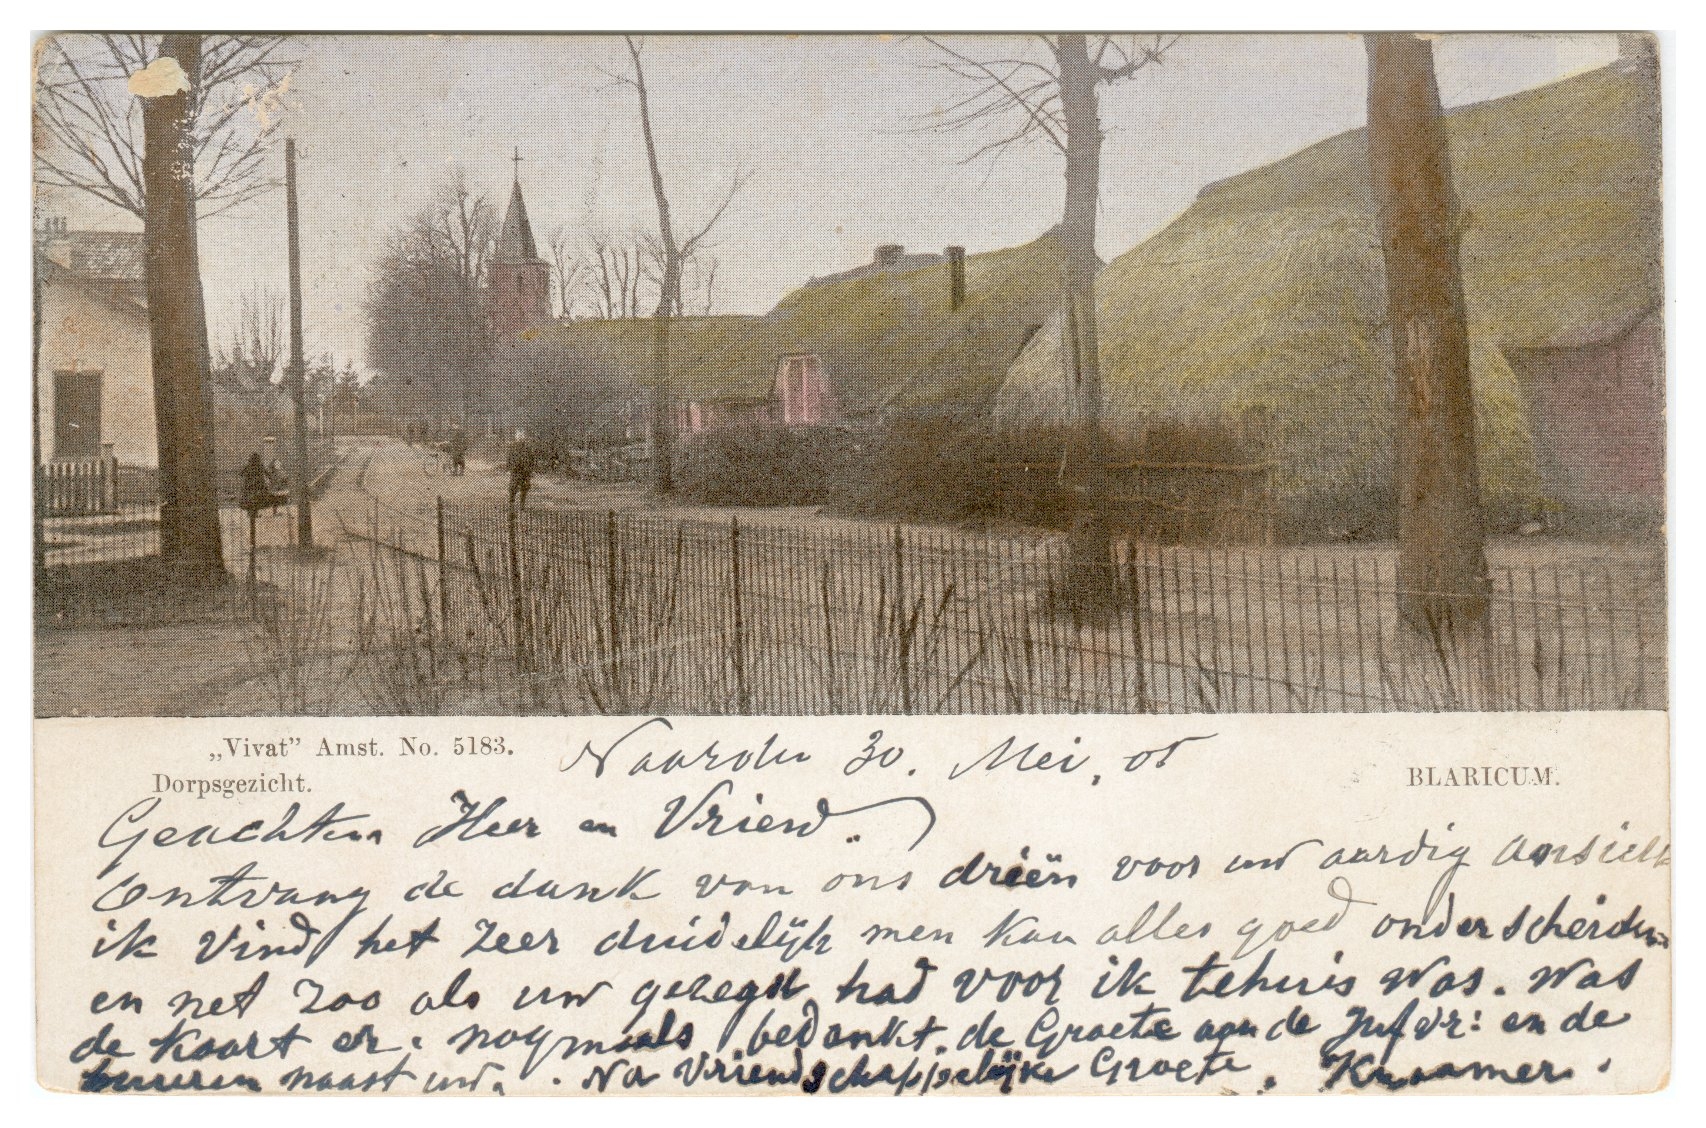 „Vivat” Amst. No. 5183.
Dorpsgezicht.
Naarden 30. Mei. 05
BLARICUM.
Geachten Heer en Vriend.
Ontvang de dank van ons drieën voor uw aardig ansicht
ik vind het zeer duidelijk men kan alles goed onderscheiden
en net zoo als uw gezegd had voor ik tehuis was. was
de kaart er. nogmaals bedankt. de Groete aan de Jufvr: en de
buuren naast uw. . Na Vriendschappelijke Groete. Kraamer.